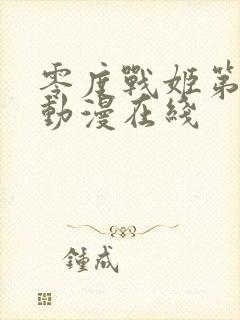 零度戰姬第
動漫在綫
鍾成